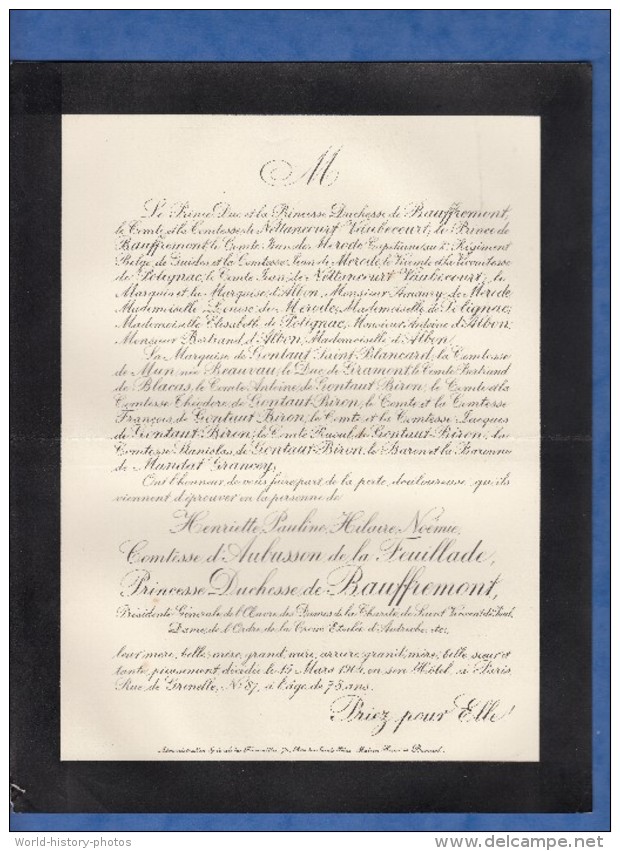 M
Le Prince Duc et la Princesse Duchesse de Bauffremont,
le Comte et la Comtesse de Nettancourt Vaubecourt, le Prince de
Bauffremont, le Comte Jean de Merode Capitaine au 2e Régiment
Belge de Guides et la Comtesse Jean de Merode, le Vicomte et la Vicomtesse
de Polignac, le Comte Jean de Nettancourt Vaubecourt, le
Marquis et la Marquise d'Albon, Monsieur Amaury de Merode
Mademoiselle Louise de Merode, Mademoiselle de Polignac,
Mademoiselle Elisabeth de Polignac, Monsieur Antoine d'Albon,
Monsieur Bertrand d'Albon, Mademoiselle d'Albon,
La Marquise de Gontaut Saint-Blancard, la Comtesse
de Mun née Beauvau, le Duc de Gramont, le Comte Bertrand
de Blacas, le Comte Antoine de Gontaut Biron, le Comte et la
Comtesse Théodore de Gontaut-Biron, le Comte et la Comtesse
François de Gontaut Biron, le Comte et la Comtesse Jacques
de Gontaut Biron, le Comte Raoul de Gontaut-Biron, la
Comtesse Stanislas de Gontaut-Biron, le Baron et la Baronne
de Mandat Grancey,
Ont l'honneur de vous faire part de la perte douloureuse qu'ils
viennent d'éprouver en la personne de
Henriette, Pauline, Hilaire, Noémie,
Comtesse d'Aubusson de la Feuillade,
Princesse Duchesse de Bauffremont,
Présidente Générale de l'Œuvre des Dames de la Charité de Saint Vincent de Paul,
Dame de l'Ordre de la Croix Etoilée d'Autriche, etc,
leur mère, belle-mère, grand'mère, arrière grand'mère, belle sœur et
tante, pieusement décédée le 15 Mars 1904, en son Hôtel, à Paris
Rue de Grenelle, No 87, à l'âge de 78 ans.
Priez pour Elle!
Administration
World-history-photos
delcampe.net